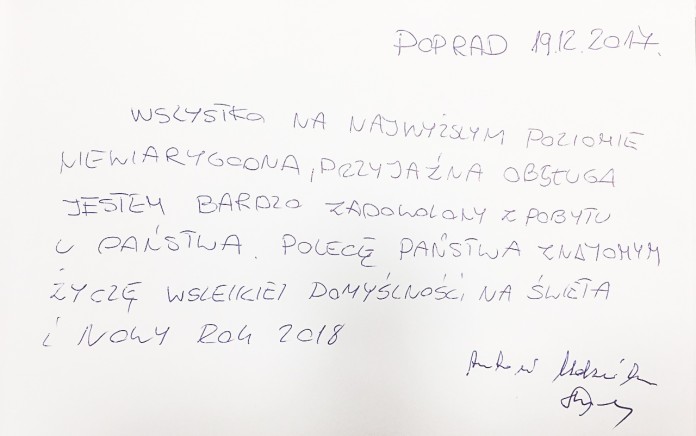 POPRAD 19.12.2017.
WSZYSTKO NA NAJWYŻSZYM POZIOMIE
NIEWIARYGODNA, PRZYJAŹNA OBSŁUGA
JESTEM BARDZO ZADOWOLONY Z POBYTU
U PAŃSTWA. POLECĘ PAŃSTWA ZNAJOMYM
ŻYCZĘ WSZELKIEJ DOMYŚLNOŚCI NA ŚWIĘTA
i NOWY ROK 2018